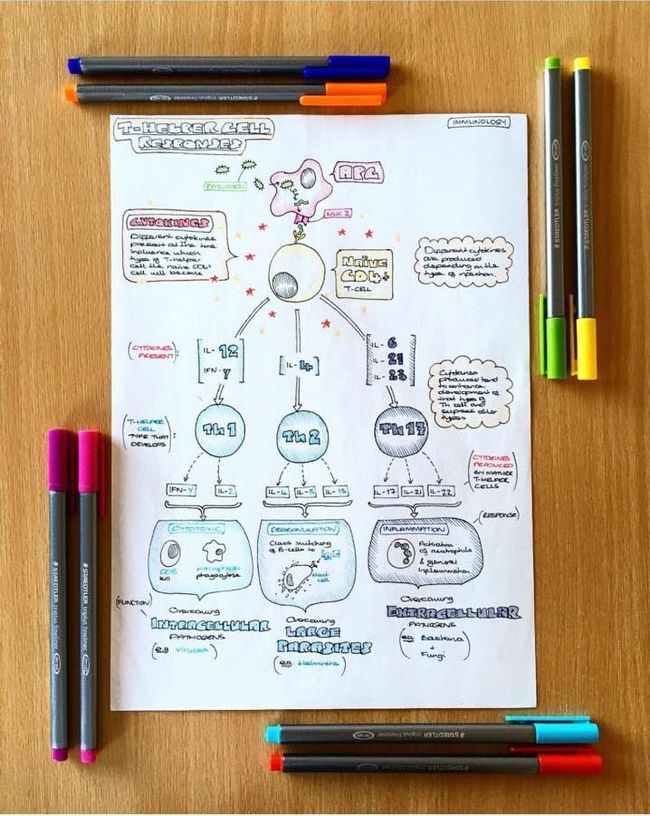 T-HELPER CELL
RESPONSES
IMMUNOLOGY
PATHOGEN
APC
MHC 2
CYTOKINES
Different cytokines
present at the time
influence which
type of T-helper
cell the naive CD4+
cell will become
NAÏVE
CD4+
T-CELL
Different cytokines
are produced
depending on the
type of infection.
(CYTOKINES
PRESENT):
IL-12
IFN-γ
IL-4
IL-6
IL-21
IL-23
Cytokines
produced tend
to enhance
development of
that type of
Th cell and
supress other
types
(T-HELPER
CELL
TYPE THAT
DEVELOPS):
Th1
Th2
Th17
(CYTOKINES
PRODUCED
BY MATURE
T-HELPER
CELLS)
IFN-γ
IL-2
IL-4
IL-5
IL-13
IL-17
IL-21
IL-22
(RESPONSE)
CYTOTOXIC
CD8
kill
macrophages
phagocytose
DEGRANULATION
Class switching
of B-cells to
IgE
Mast
cell
INFLAMMATION
Activation
of neutrophils
& general
inflammation
(FUNCTION)
Overcoming
INTRACELLULAR
PATHOGENS
(eg Viruses)
Overcoming
LARGE
PARASITES
(eg. Helminths)
Overcoming
EXTRACELLULAR
PATHOGENS
(eg. Bacteria
+
Fungi)
STAEDTLER triplus fineliner
STAEDTLER triplus fineliner
STAEDTLER triplus fineliner
STAEDTLER triplus fineliner
STAEDTLER triplus fineliner
STAEDTLER triplus fineliner
STAEDTLER triplus fineliner
STAEDTLER triplus fineliner